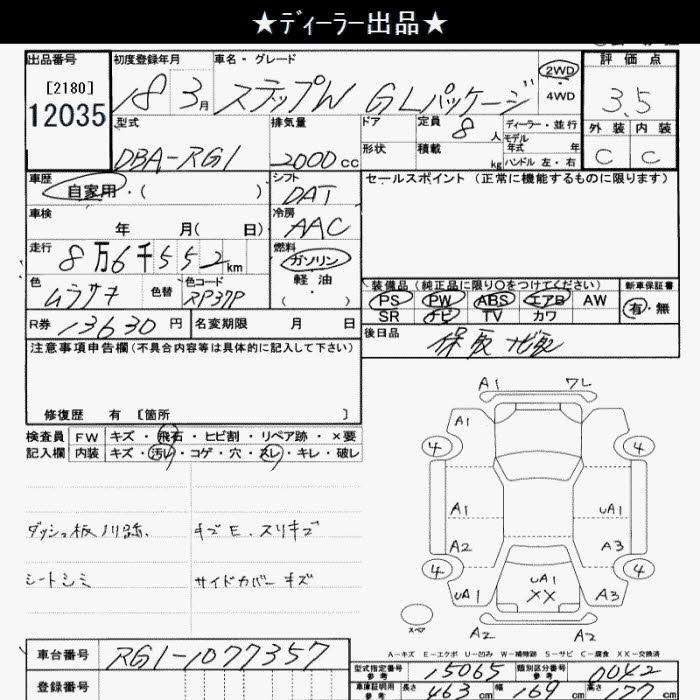 ★ディーラー出品★
出品番号
[2180]
12035
初度登録年月
18 3月
車名・グレード
ステップW GLパッケージ
2WD
4WD
評価点
3.5
外装 内装
C C
型式
DBA-RG1
排気量
2000cc
ドア
形状
定員
8人
積載
kg
ディーラー・並行
モデル年式 年
ハンドル 左・右
車歴
自家用・( )
シフト
DAT
セールスポイント (正常に機能するものに限ります)
車検
年 月( 日)
冷房
AAC
走行
8万6千552km
燃料
ガソリン
軽油
( ・ )
色
ムラサキ
色替
色コード
RP37P
装備品 (純正品に限り○をつけてください)
PS PW ABS エアB AW
SR ナビ TV カワ
新車保証書
有・無
R券 13630円
名変期限 月 日
後日品
保取 ナビ取
注意事項申告欄 (不具合内容等は具体的に記入して下さい)
修復歴 有 [箇所 ]
検査員 FW キズ・飛石・ヒビ割・リペア跡・×要
記入欄 内装 キズ・汚れ・コゲ・穴・スレ・キレ・破レ
ダッシュ板ノリ跡
キズE、スリキズ
シートシミ
サイドカバーキズ
A1 ワレ
A1 A1
4 4
A1 uA1
A2 A3
4 4
uA1 uA1 A3
XX
スペア
A2 A2
A-キズ E-エクボ U-凹み W-補修跡 S-サビ C-腐食 XX-交換済
車台番号 RG1-1077357
登録番号
型式指定番号 参考 15065
類別区分番号 参考 0042
車庫証明用 参考 長さ 463cm 幅 169cm 高さ 177cm